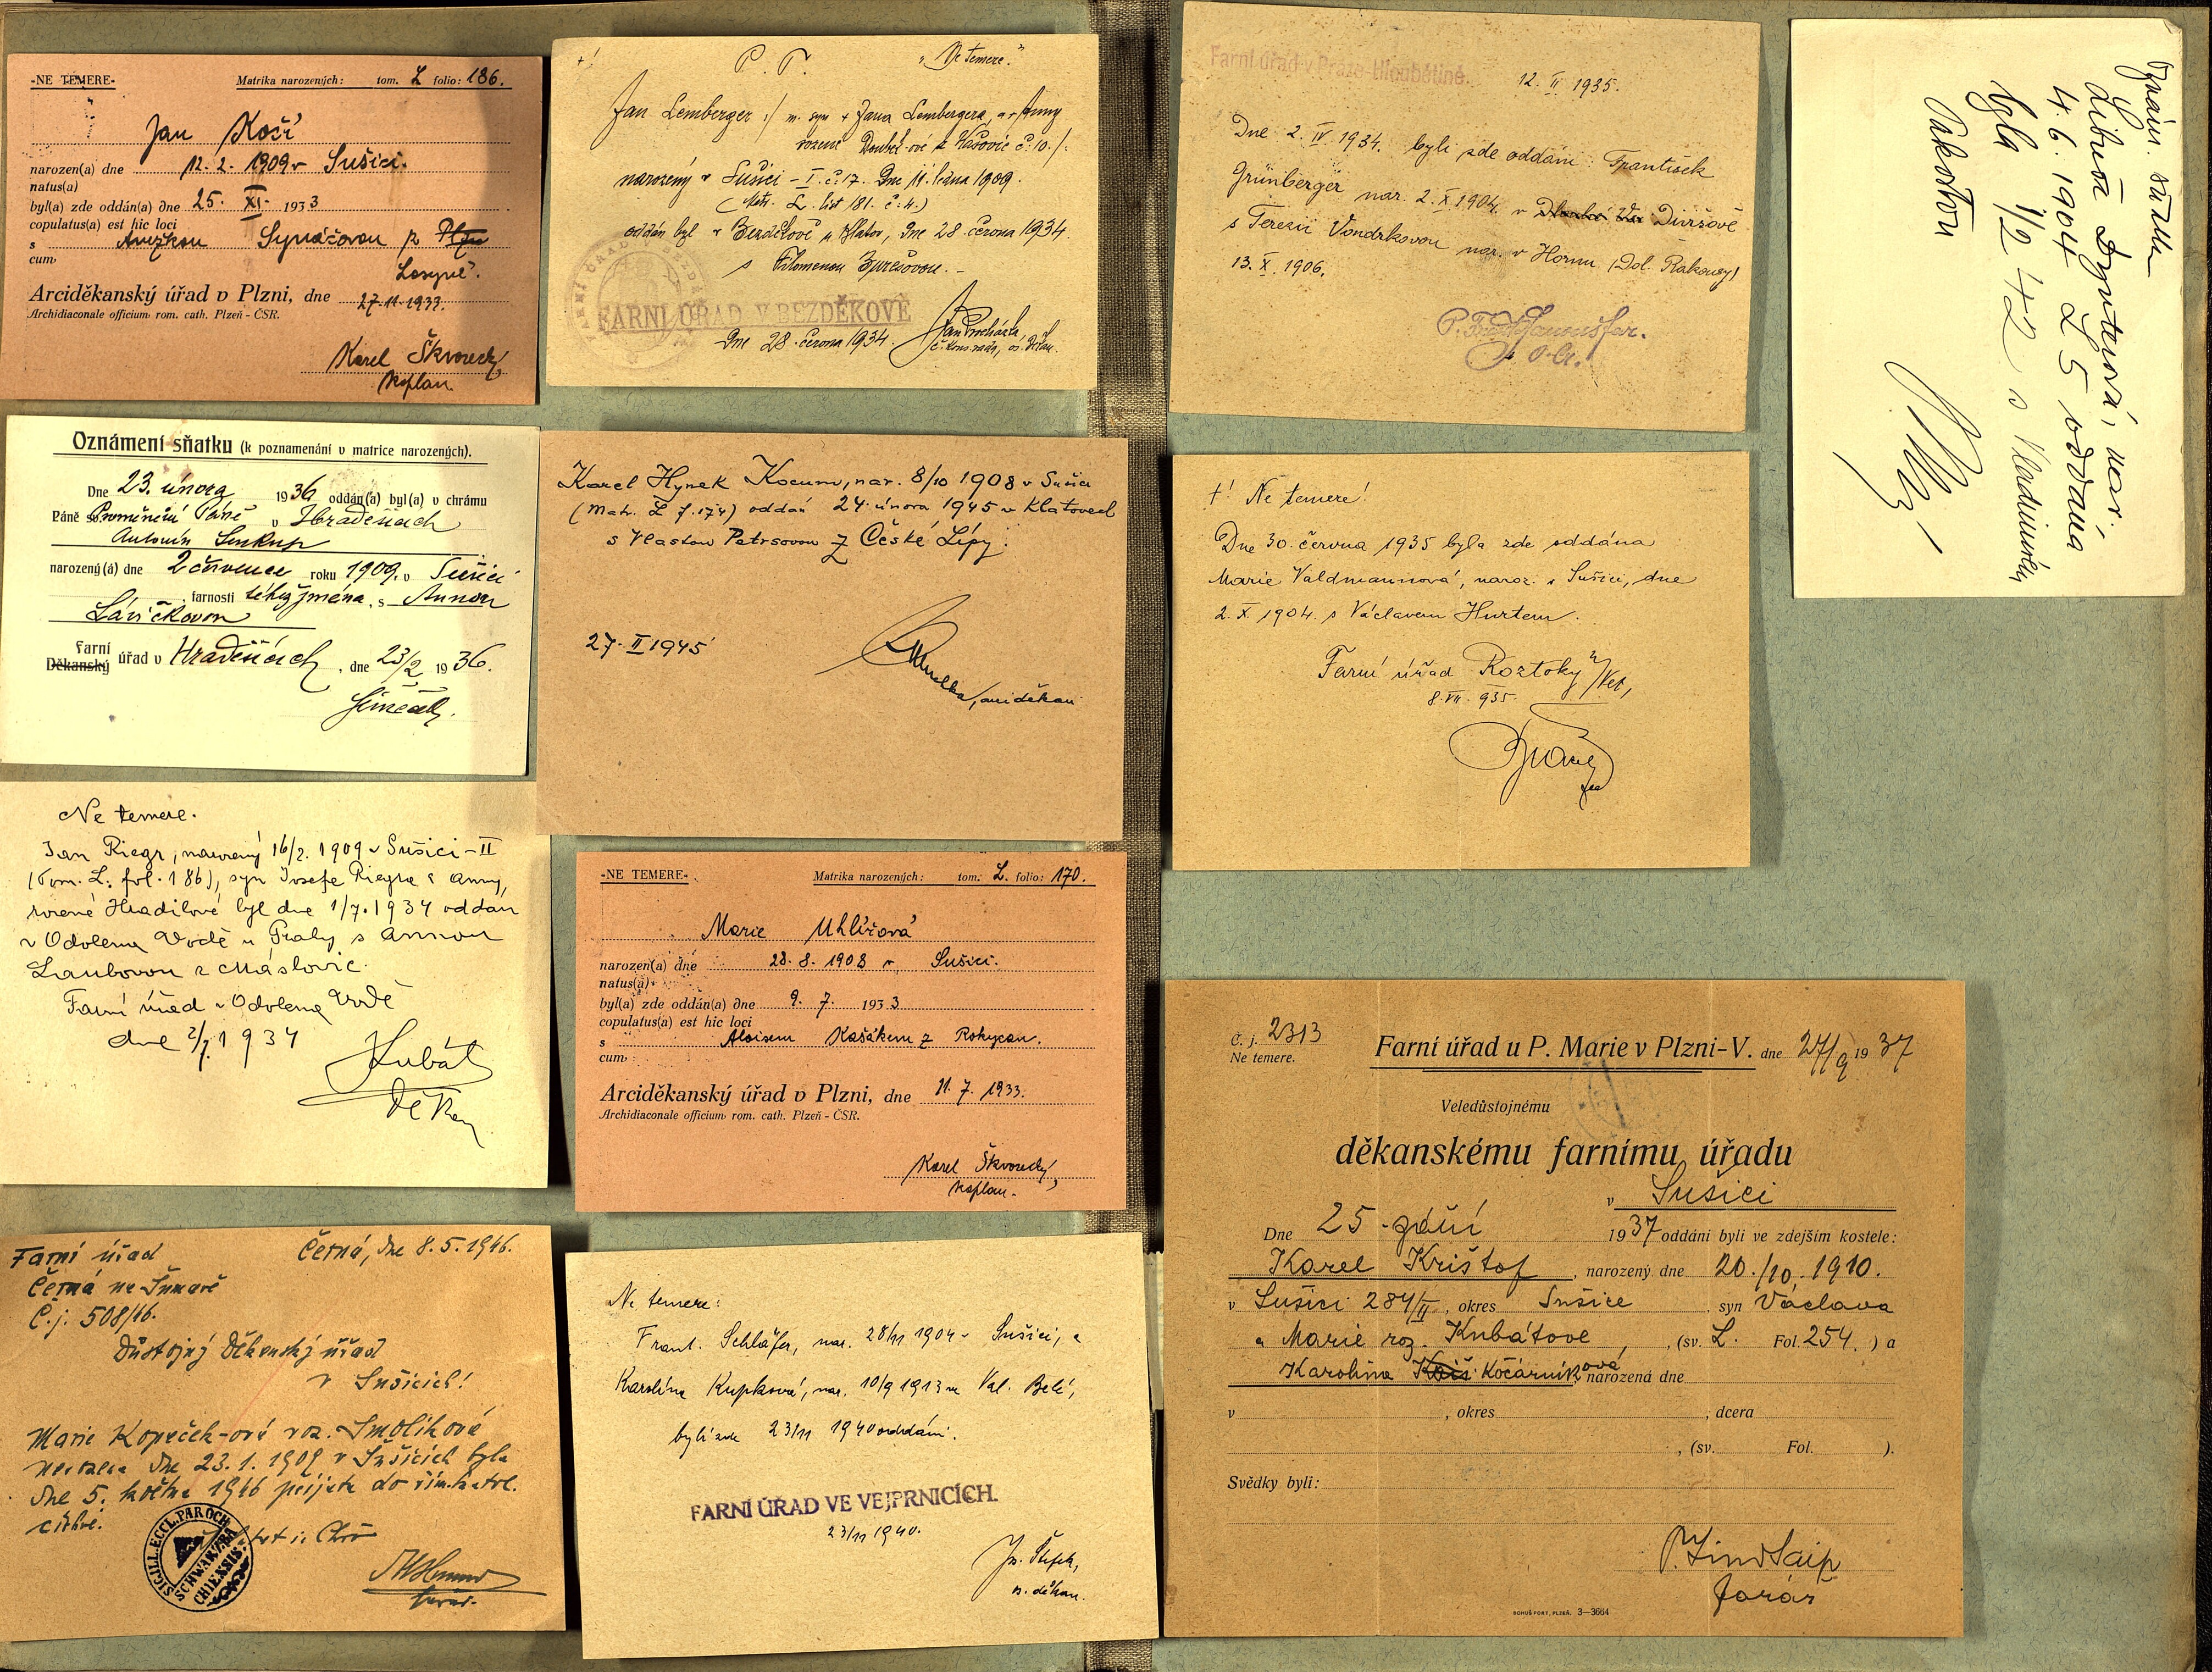 -NE TEMERE- Matrika narozených: tom. L folio: 186.
Jan Kočí
narozen(a) dne 12. 2. 1909 v Sušici.
natus(a)
byl(a) zde oddán(a) dne 25. XI. 1933
copulatus(a) est hic loci
s Anežkou z
cum
Arciděkanský úřad v Plzni, dne 27. 11. 1933.
Archidiaconale officium rom. cath. Plzeň - ČSR.
Karel Škvorecký,
kaplan
Oznámení sňatku (k poznamenání v matrice narozených).
Dne 23. února 1936 oddán(a) byl(a) v chrámu
Páně Proměnění Páně v Hradešicích
Antonín Soukup
narozený(á) dne 2 července roku 1909. v Sušici
farnosti téhož jména, s Annou
Lávičkovou
Farní
Děkanský úřad v Hradešicích, dne 23/2 1936.
Ne temere.
Jan Riegr, narozený 16/2. 1909 v Sušici-II
(Tom. L. fol. 186), syn Josefa Riegra a Anny,
rozené Hradilové byl dne 1/7. 1934 oddán
v Odolena Vodě u Prahy s Annou
Laubovou z Máslovic.
Farní úřad v Odolena Vodě
dne 2/7. 1934
Kubát
děkan
Farní úřad Černá, dne 8. 5. 1946.
Černá na Šumavě
Č.j. 508/46.
Důstojný Děkanský úřad
v Sušicích!
Marie Kopeček-ová roz. Smolíková
narozena dne 23. 1. 1909 v Sušicích byla
dne 5. května 1946 přijata do řím.katol.
církve.
SIGILL. ECCL. PAROCH
SCHWARZBA
CHIENSIS
farář.
P. T. "Ne temere."
Jan Lemberger :/ m. syn + Jana Lembergera, a + Anny
rozené Doubek-ové z č. 10. /:
narozený v Sušici - I. č. 17. Dne 14. ledna 1909.
(Matr. L. list 181. č. 4.)
oddán byl v Bezděkově u Klatov, dne 28 června 1934
s Filomenou
FARNÍ ÚŘAD V BEZDĚKOVĚ
Dne 28. června 1934. Jan Procházka,
Karel Hynek Kocum, nar. 8/10 1908 v Sušici
(matr. L f. 174) oddán 24. února 1945 v Klatovech
s Vlastou Petrsovou z České Lípy.
27. II 1945
arciděkan
-NE TEMERE- Matrika narozených: tom. L. folio: 170.
Marie Uhlířová
narozen(a) dne 28. 8. 1908 v Sušici.
natus(a)
byl(a) zde oddán(a) dne 9. 7. 1933
copulatus(a) est hic loci
s Aloisem Kašákem z Rokycan.
cum
Arciděkanský úřad v Plzni, dne 11. 7. 1933.
Archidiaconale officium rom. cath. Plzeň - ČSR.
Karel Škvorecký,
kaplan.
Ne temere:
Frant. Schläfer, nar. 28/11 1904 v Sušici, a
Karolína Kupková, nar. 10/9 1913 ve Val. Belé,
byli zde 23/11 1940 oddáni.
FARNÍ ÚŘAD VE VEJPRNICÍCH.
23/11 1940.
Farní úřad v Praze-Hloubětíně.
12. II. 1935.
Dne 2. IV. 1934. byli zde oddáni: František
Grünberger nar. 2. X. 1904. v Divišově
s Terezií Vondrkovou nar. v Hornu (Dol. Rakousy)
13. X. 1906.
+! Ne temere!
Dne 30. června 1935 byla zde oddána
Marie Valdmannová, naroz. v Sušici, dne
2. X. 1904. s Václavem Hurtem.
Farní úřad Roztoky
8. VII. 935.
Oznám. sňatku
Libuše, nar.
4. 6. 1904 L 5 oddána
byla 1/2 42 s Vladimírem
Pakostou
Č. j. 2313
Ne temere.
Farní úřad u P. Marie v Plzni-V. dne 27/9 1937
Veledůstojnému
děkanskému farnímu úřadu
v Sušici
Dne 25. září 1937 oddáni byli ve zdejším kostele:
Karel Krištof, narozený dne 20./10. 1910.
v Sušici 284/II, okres Sušice syn Václava
a Marie roz. Kubátové, (sv. L. Fol. 254.) a
Karolina Kočárníková narozená dne
v , okres , dcera
, (sv. Fol. ).
Svědky byli:
farář
BOHUŠ FORT, PLZEŇ. 3—3664